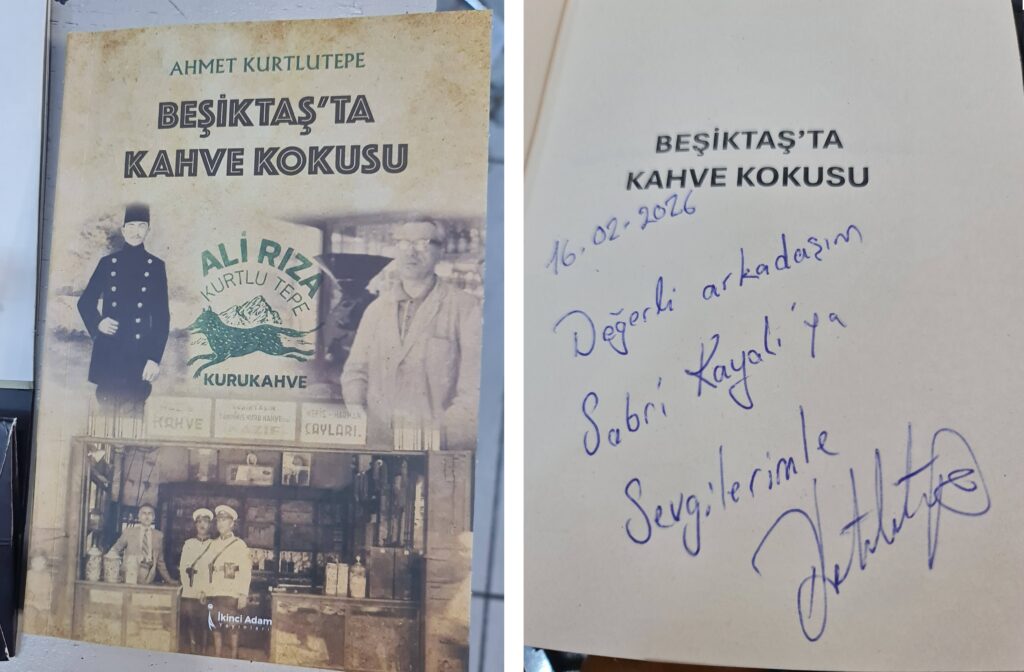 AHMET KURTLUTEPE
BEŞİKTAŞ'TA
KAHVE KOKUSU
ALİ RIZA
KURTLU TEPE
KURUKAHVE
KAHVE
ÇAYLARI.
İkinci Adam
Yayınları
BEŞİKTAŞ'TA
KAHVE KOKUSU
16.02.2026
Değerli arkadaşım
Sabri Kayalı'ya
Sevgilerimle